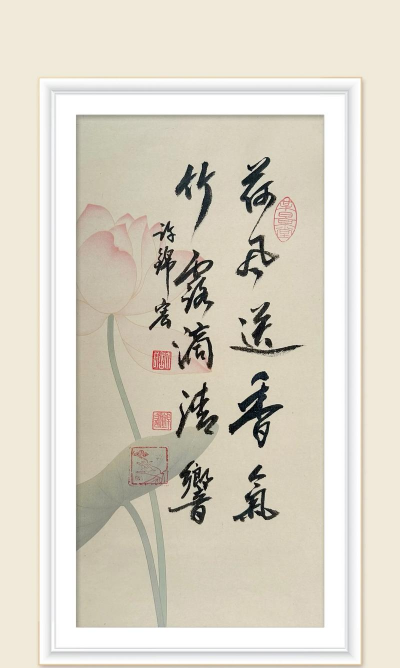 荷风送香氣
竹露滴清響
许锦宏